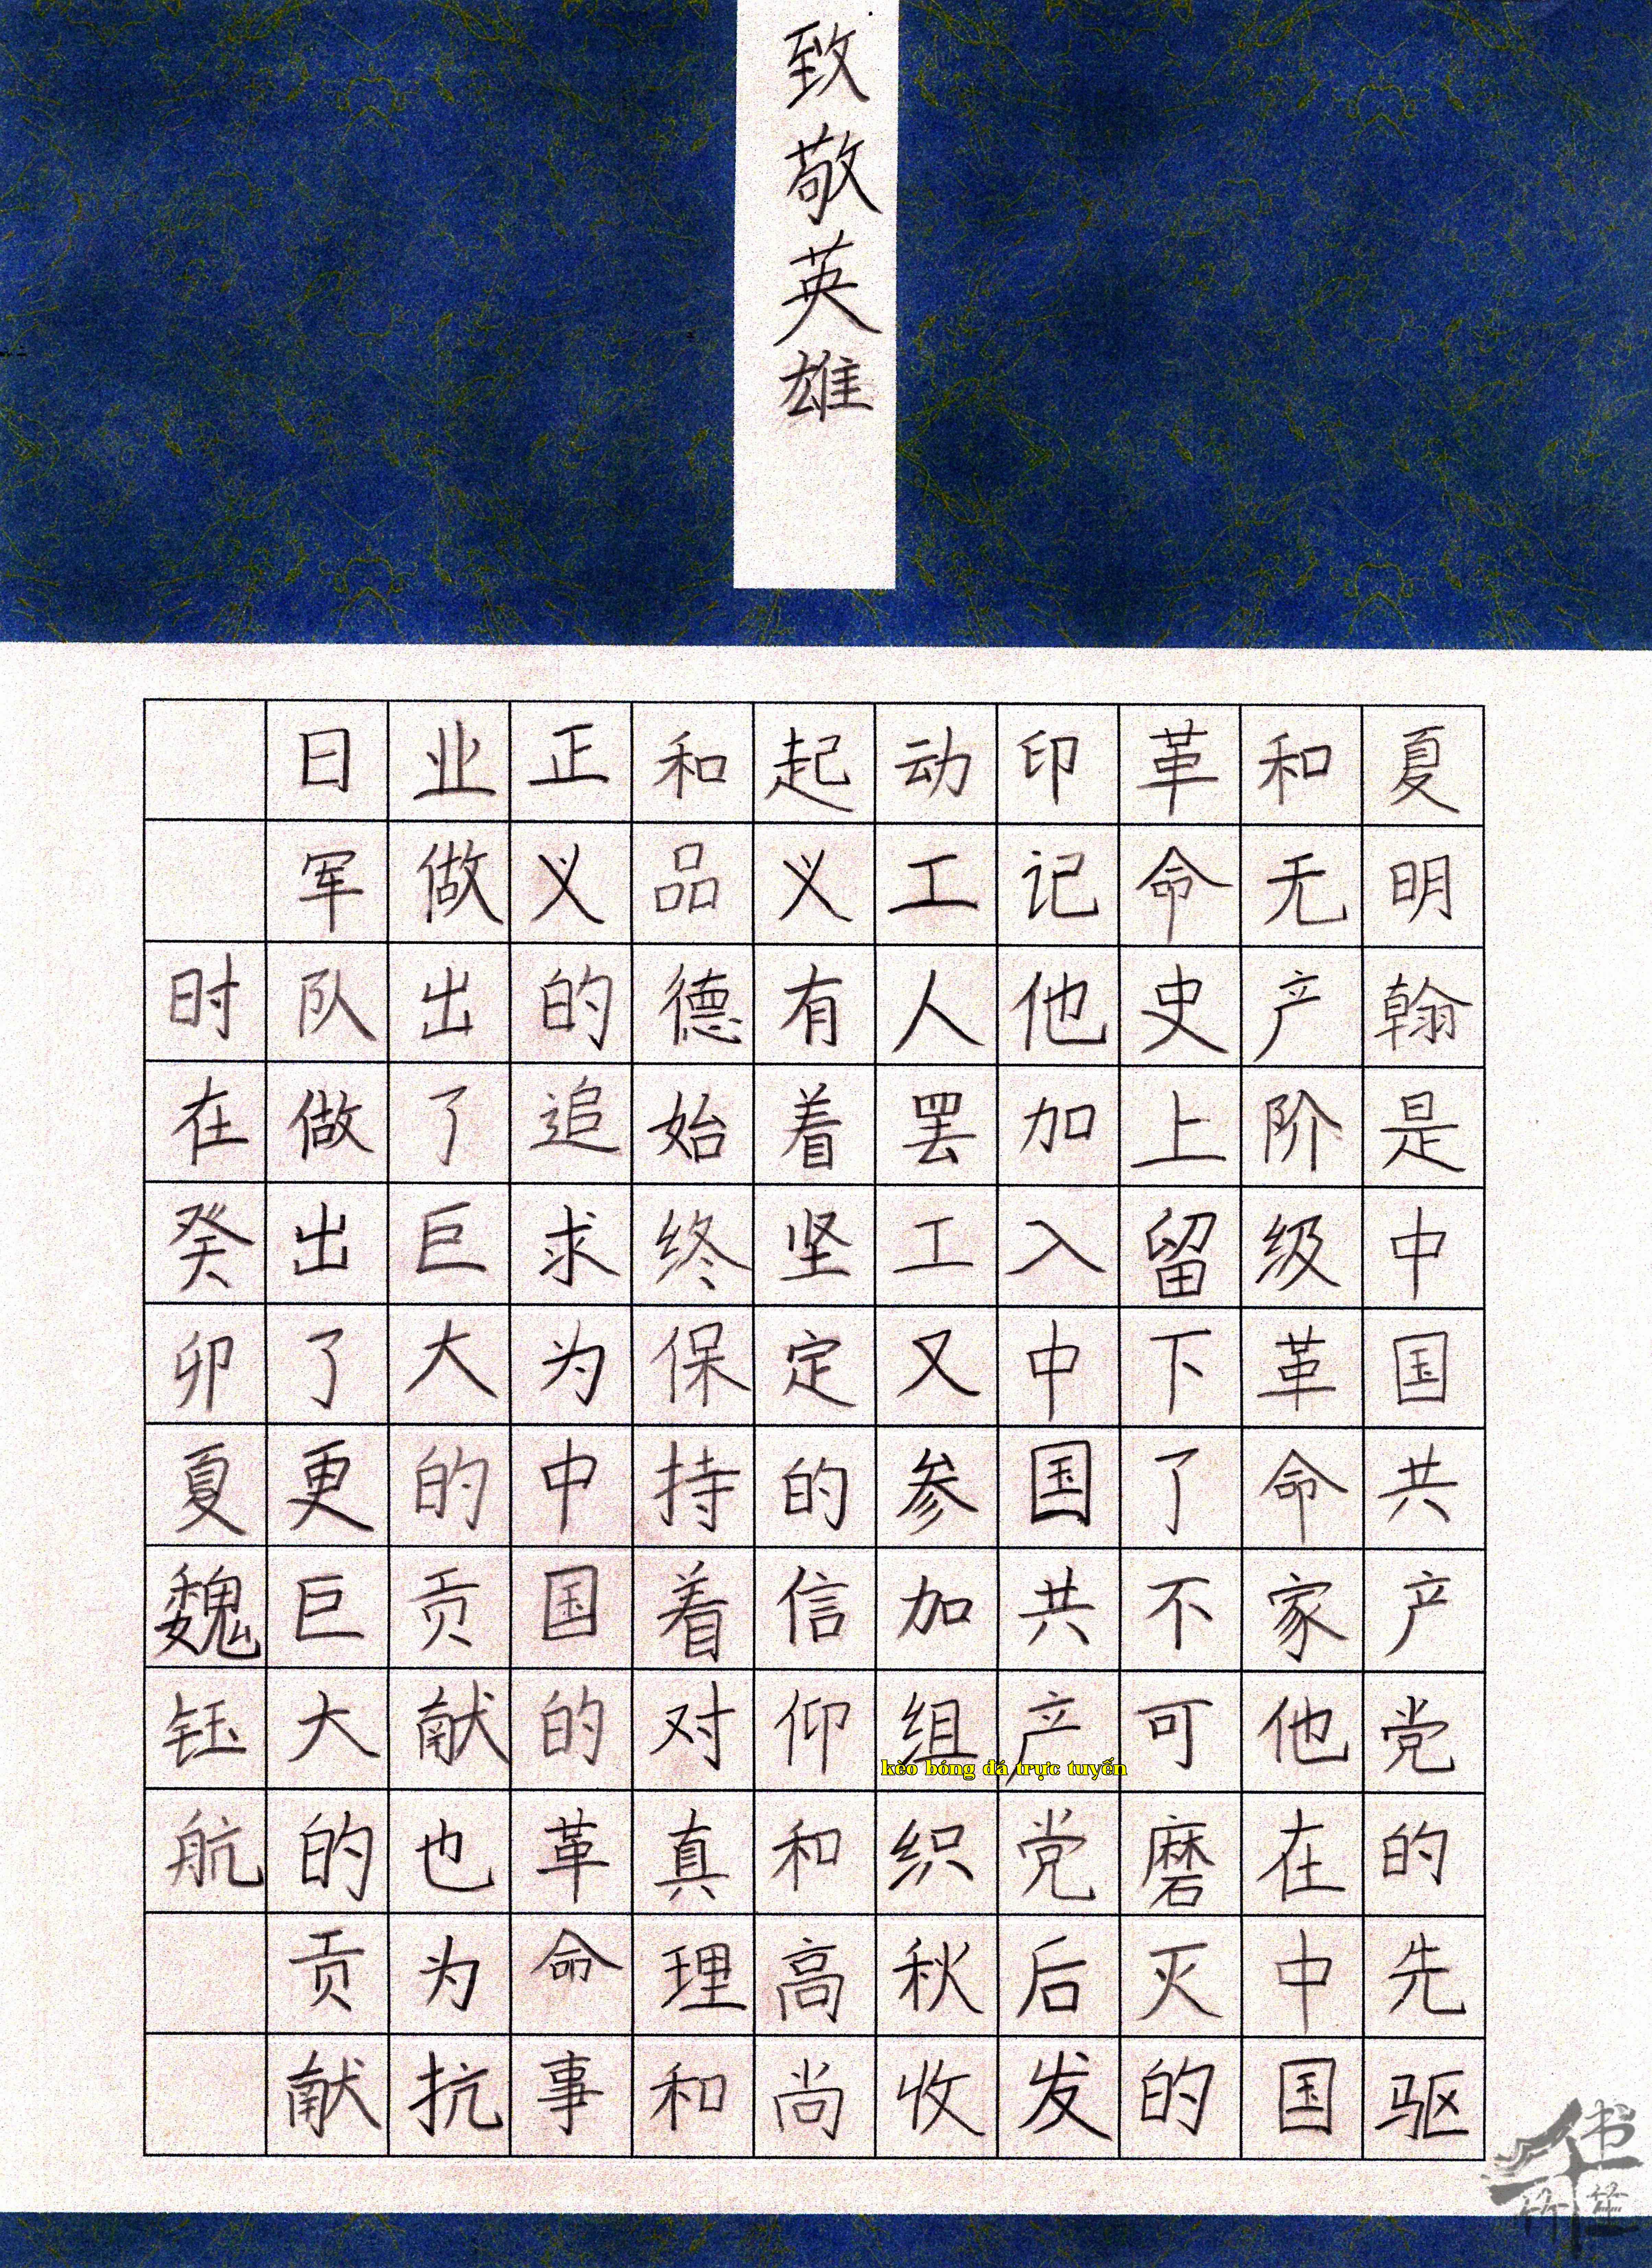 致敬英雄
夏明翰是中国共产党的先驱
和无产阶级革命家他在中国
革命史上留下了不可磨灭的
印记他加入中国共产党后发
动工人罢工又参加组织秋收
起义有着坚定的信仰和高尚
和品德始终保持着对真理和
正义的追求为中国的革命事
业做出了巨大的贡献也为抗
日军队做出了更巨大的贡献
时在癸卯夏魏钰航
kèo bóng đá trực tuyến